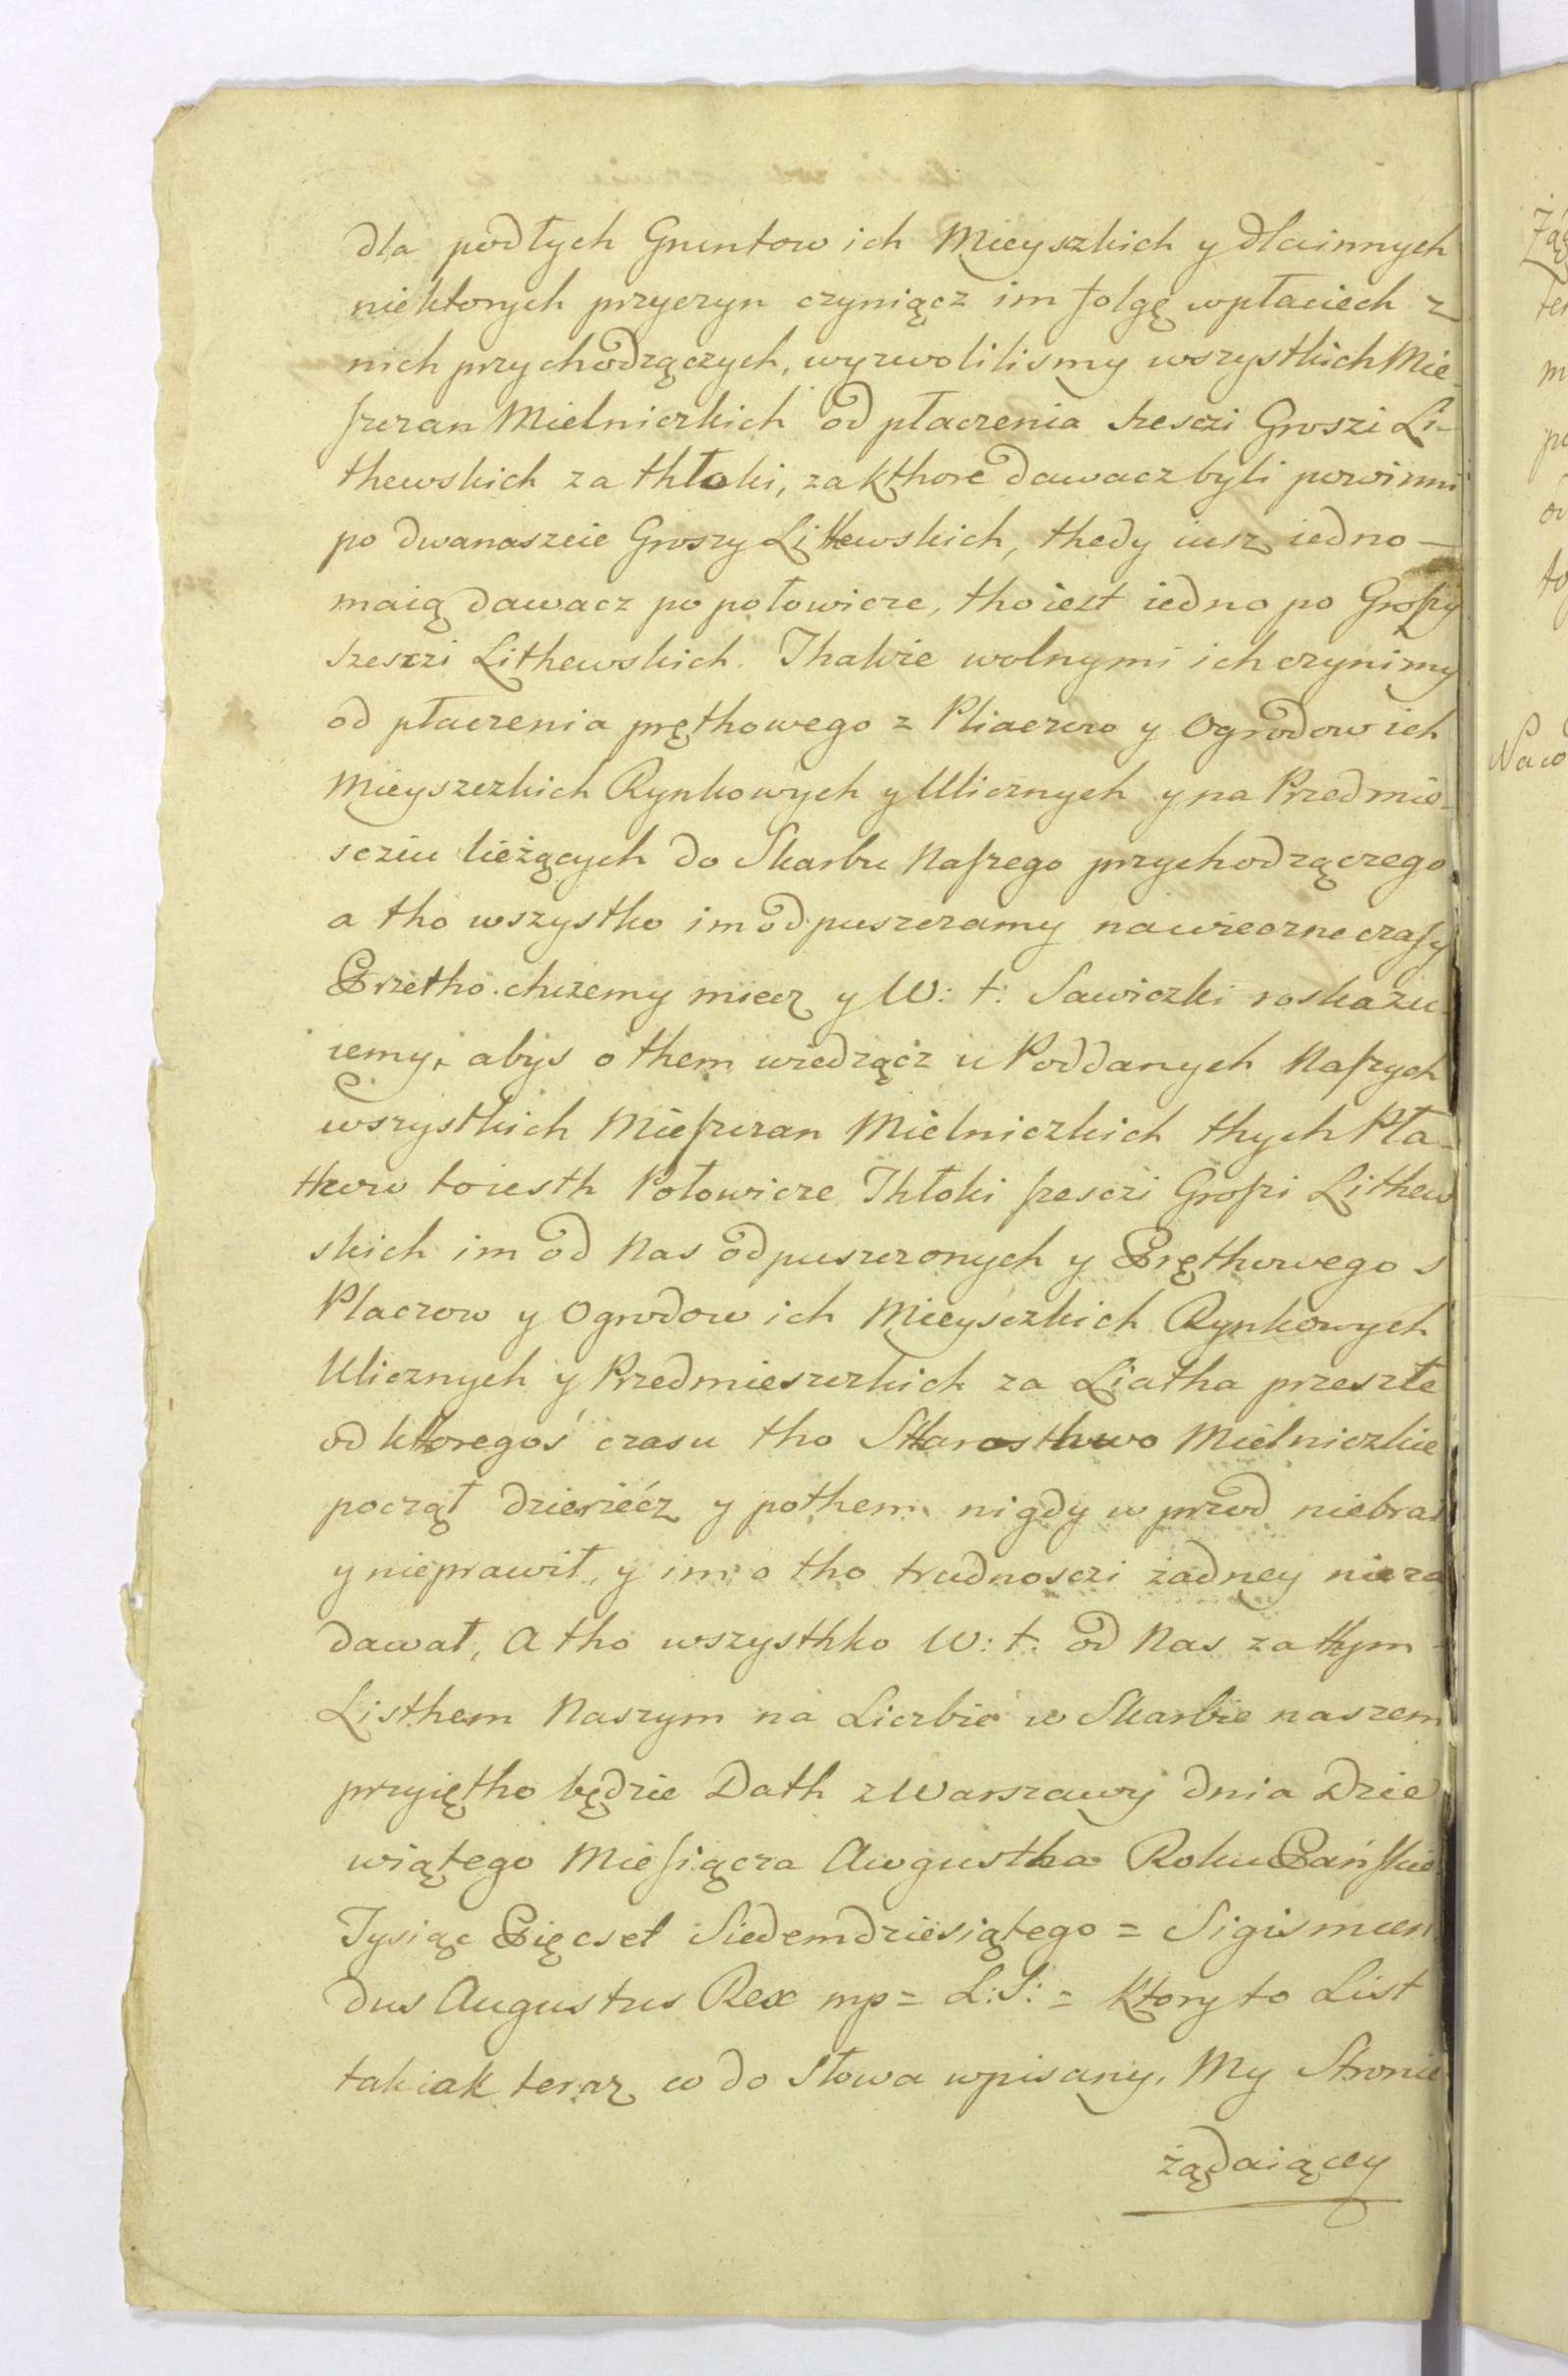 dla podłych Gruntow ich Mieyszkich y dlainnych
niektorych przyczyn czyniącz im folgę wpłaciech z
nich przychodzączych, wyzwolilismy wszystkich Mie-
szczan Mielniczkich od płaczenia szesczi Groszi Li-
thewskich za thłoki, za kthore dawacz byli powinni
po dwanaszcie Groszy Lithewskich, thedy iusz iedno-
maią dawacz po połowicze, thoiest iedno po Groszy
szesczi Lithewskich. Thakie wolnymi ich czynimy
od płaczenia prętkowego z Pliaczow y Ogrodow ich
Mieyszczkich Rynkowych y Ulicznych y na Przedmie-
scziu lieżących do Skarbu Naszego przychodzączego
a tho wszystko im odpuszczamy nawieczne czasy
Przetho chczemy miecz y W: t: Sawiczki roskazu-
iemy, abys o them wiedzącz u Poddanych Naszych
wszystkich Mieszczan Mielniczkich thych Pła-
thow toiesth Połowicze Thłoki szesczi Groszi Lithew
skich im od Nas odpuszczonych y Prętkowego s
Placzow y Ogrodow ich Mieysczkich Rynkowych
Ulicznych y Przedmieszczkich za Liatha przeszłe
od kthoregoś czasu tho Stharosthwo Mielniczkie
począł dzierżécz y pothem nigdy w przod niebrał
y nieprawił, y im o tho trudnosczi żadney nieza
dawał, A tho wszysthko W: t: od Nas za thym
Listhem Naszym na Liczbie w Skarbie naszem
przyiętho będzie Dath z Warszawy dnia Dzie
wiątego Miesiącza Awgustha Roku Pańskie
Tysiąc Pięcset Siedemdziesiątego = Sigismun
dus Augustus Rex mp = L:S: = Ktory to List
tak iak teraz co do Słowa wpisany, My Stronie
żądaiącey